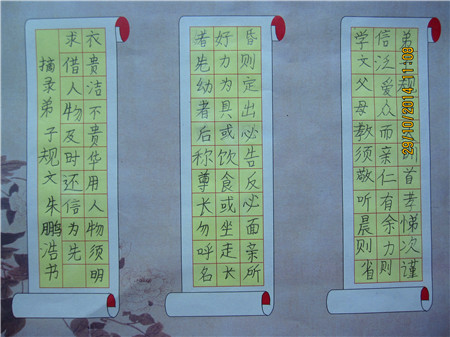 弟子规训首孝悌次谨
信泛爱众而亲仁有余力则
学文父母教须敬听晨则省
昏则定出必告反必面亲所
好力为具或饮食或坐走长
者先幼者后称尊长勿呼名
衣贵洁不贵华用人物须明
求借人物及时还信为先
摘录弟子规文 朱鹏浩书
29/10/2014 11:08